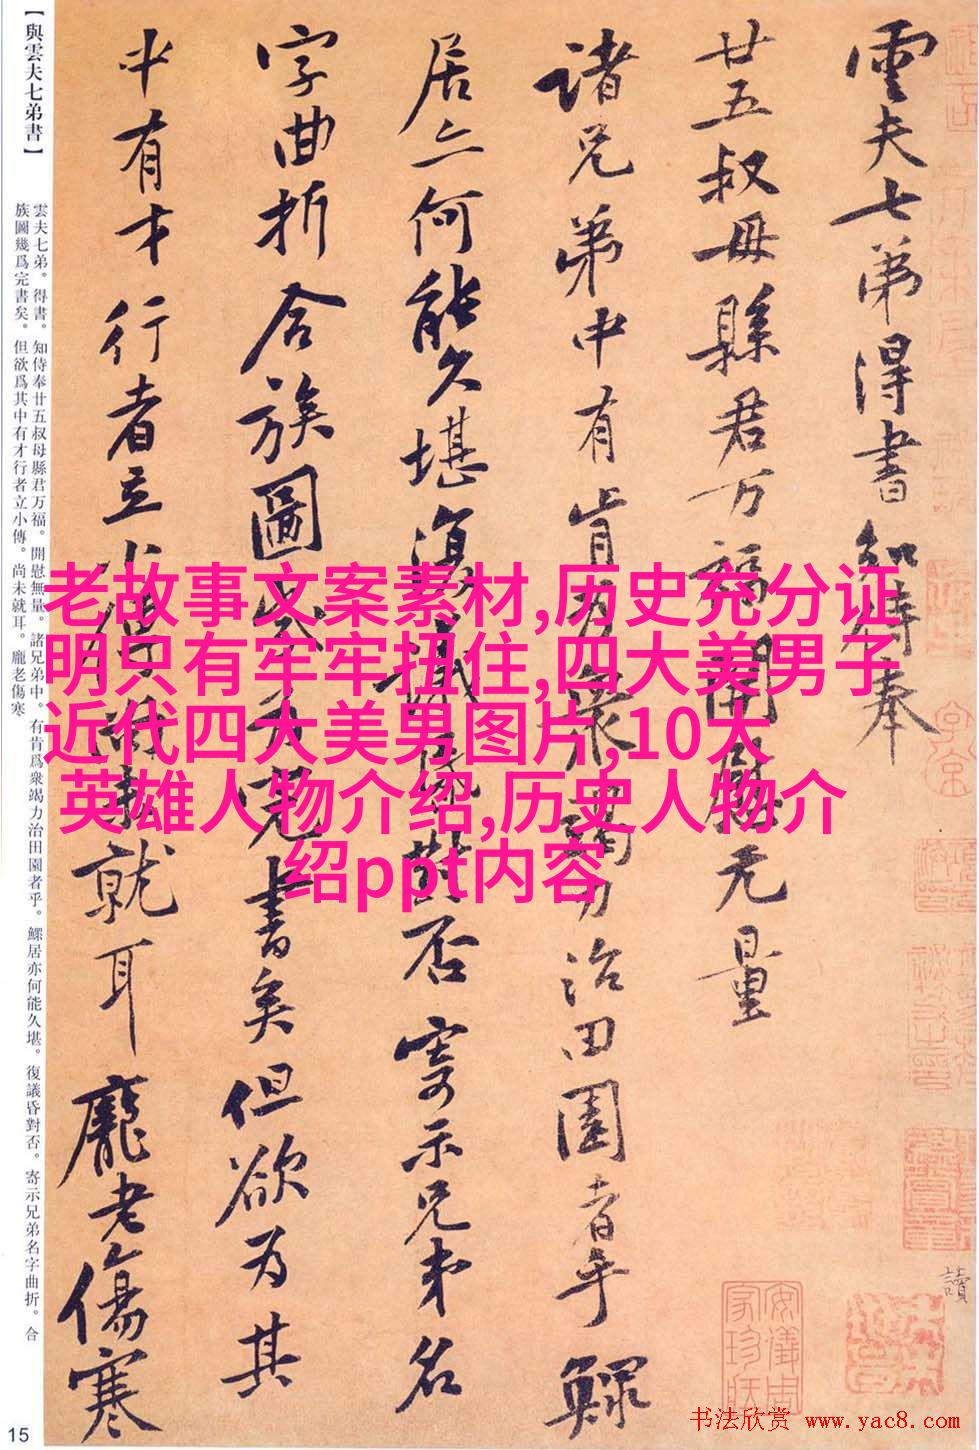 雲夫七弟得書知侍奉
廿五叔母縣君万福開慰无量
諸兄弟中有肯为衆竭力治田園者乎鰥
居亦何能久堪復議昏對否寄示兄弟名
字曲折合族圖幾为完書矣但欲为其
中有才行者立小傳尚未就耳龐老傷寒
讀
安儀周家珍藏
【與雲夫七弟書】
雲夫七弟。得書。知侍奉廿五叔母縣君万福。開慰無量。諸兄弟中。有肯爲衆竭力治田園者乎。鰥居亦何能久堪。復議昏對否。寄示兄弟名字曲折。合
族圖幾爲完書矣。但欲爲其中有才行者立小傳。尚未就耳。龐老傷寒
老故事文案素材,历史充分证
明只有牢牢扭住,四大美男子
近代四大美男图片,10大
英雄人物介绍,历史人物介
绍ppt内容
15
书法欣赏 www.yac8.com